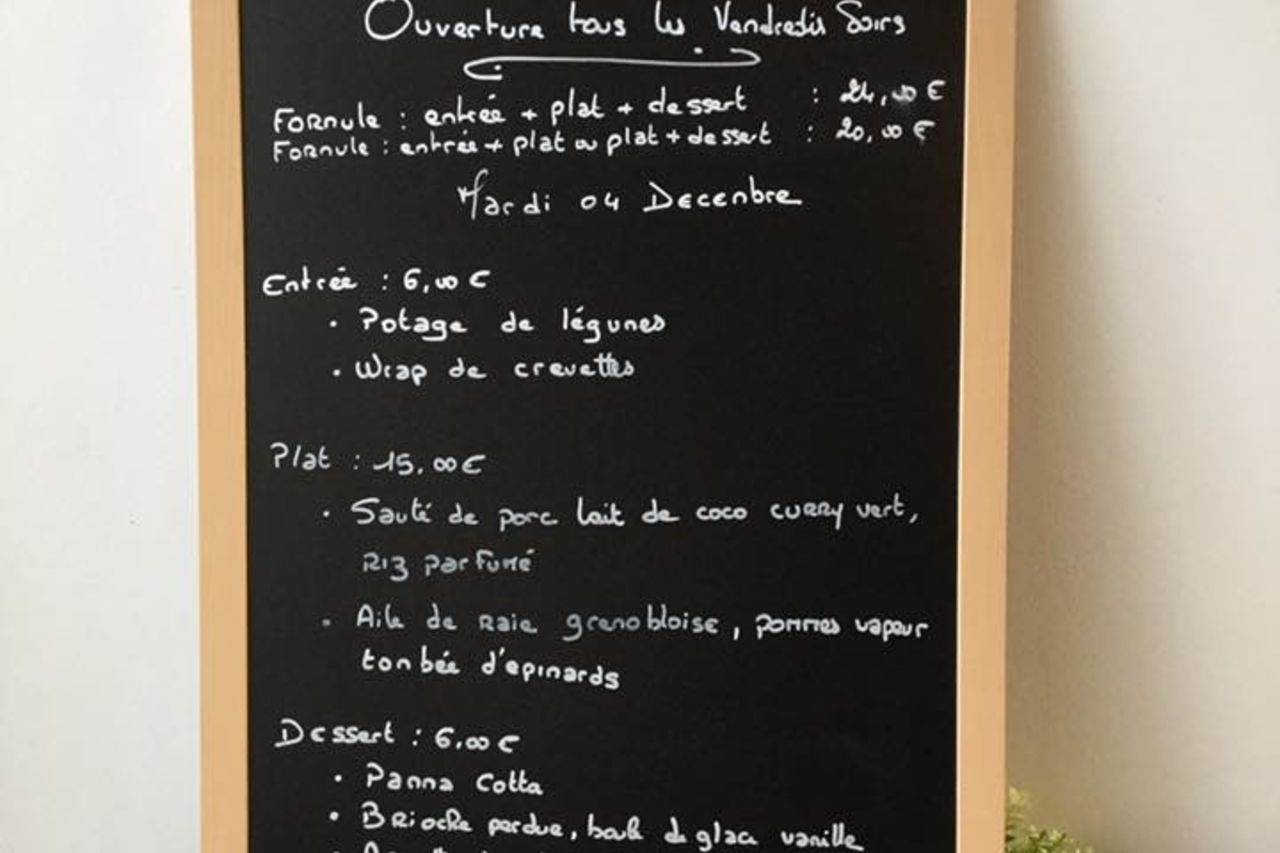 Ouverture tous les Vendredis Soirs
Formule : entrée + plat + dessert : 24,00 €
Formule : entrée + plat ou plat + dessert : 20,00 €
Mardi 04 Decembre
Entrée : 6,00 €
• Potage de légumes
• Wrap de crevettes
Plat : 15,00 €
• Sauté de porc lait de coco curry vert,
Riz parfumé
• Aile de raie grenobloise, pommes vapeur
tombée d'épinards
Dessert : 6,00 €
• Panna Cotta
• Brioche perdue, boule de glace vanille